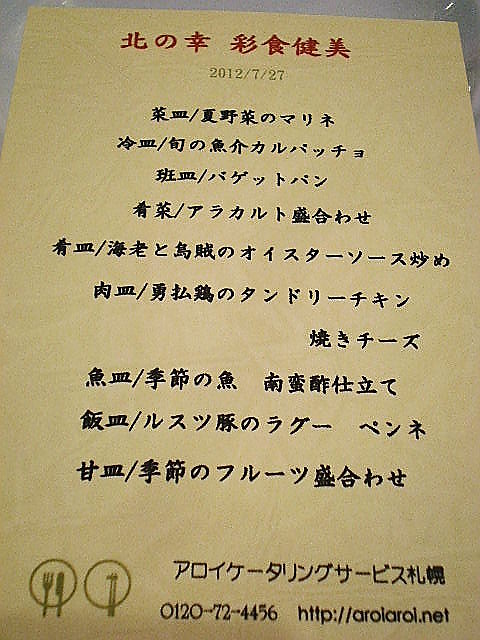 北の幸 彩食健美
2012/7/27
菜皿/夏野菜のマリネ
冷皿/旬の魚介カルパッチョ
班皿/バゲットパン
肴菜/アラカルト盛合わせ
肴皿/海老と烏賊のオイスターソース炒め
肉皿/勇払鶏のタンドリーチキン
焼きチーズ
魚皿/季節の魚 南蛮酢仕立て
飯皿/ルスツ豚のラグー ペンネ
甘皿/季節のフルーツ盛合わせ
アロイケータリングサービス札幌
0120-72-4456 http://arolarol.net